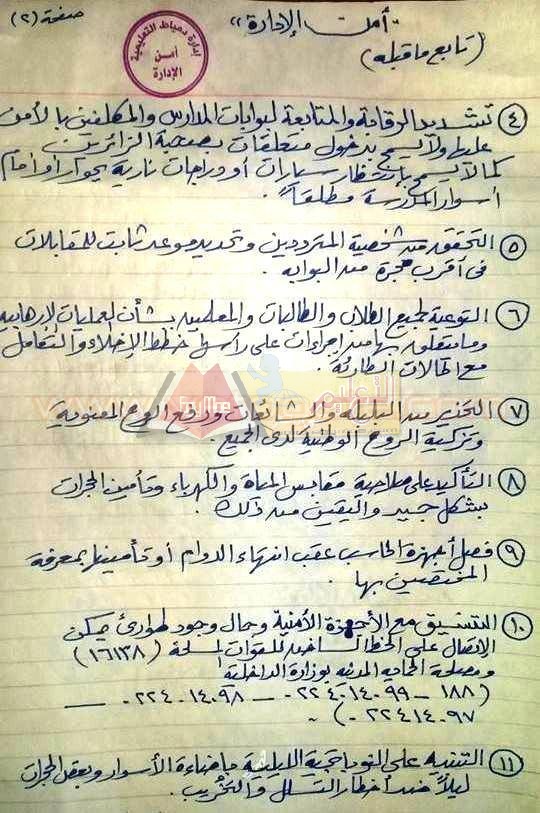 صفحة (٢)
"أمن الإدارة"
(تابع ماقبله)
إدارة دمياط التعليمية
أمن
الإدارة
④ تشديد الرقابة والمتابعة لبوابات المدارس والمكلفين بالأمن
عليها ولا يسمح بدخول متعلقات بصحبة الزائرين
كما لا يسمح بانتظار سيارات أو دراجات نارية بجوار أو أمام
أسوار المدرسة مطلقاً.
⑤ التحقق من شخصية المترددين وتحديد موعد ثابت للمقابلات
فى أقرب حجرة من البوابه.
⑥ التوعية لجميع الطلاب والطالبات والمعلمين بشأن العمليات الإرهابية
وما يتعلق بها من إجراءات على رأسها خطط الإخلاء والتعامل
مع الحالات الطارئة.
⑦ التحذير من البلبلة والشائعات ورفع الروح المعنوية
وتزكية الروح الوطنية لدى الجميع.
⑧ التأكيد على صلاحية مقابس المياة والكهرباء وتأمين الحجرات
بشكل جيد واليقين من ذلك.
⑨ فصل أجهزة الحاسب عقب انتهاء الدوام أو تأمينها بمعرفة
المختصين بها.
⑩ التنسيق مع الأجهزة الأمنية وحال وجود طوارئ يمكن
الإتصال على الخط الساخن للقوات المسلحة (١٦١٣٨)
ومصلحة الحماية المدنية بوزارة الداخلية
(١٨٨ – ٢٢٤٠١٤٠٩٩ – ٠٢٢٤٠١٤٠٩٨ – ٠
٢٢٤١٤٠٩٧ ٠)
⑪ التنبيه على النوباتجية الليلية بإضاءة الأسوار وبعض الحجرات
ليلاً ضد أخطار التسلل والتخريب.